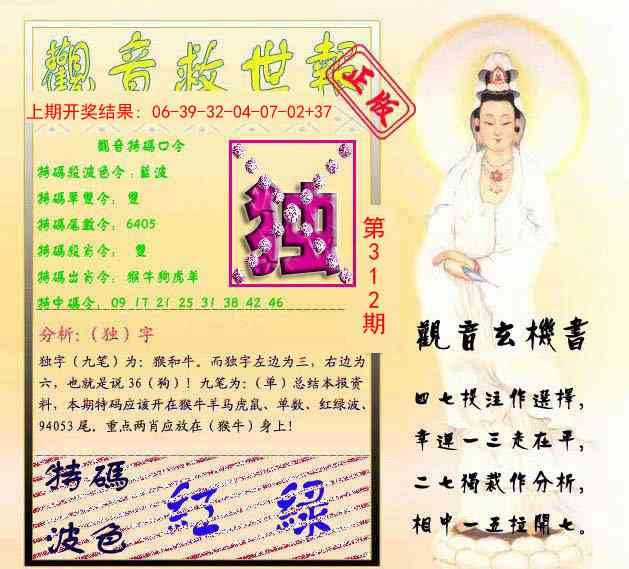 觀音救世報
正版
上期开奖结果：06-39-32-04-07-02+37
觀音特碼口令
特碼段波色令：藍波
特碼單雙令： 雙
特碼尾數令：6405
特碼段肖令： 雙
特碼出肖令：猴牛狗虎羊
特中碼令：09 17 21 25 31 38 42 46
独
第312期
分析：（独）字
独字（九笔）为：猴和牛。而独字左边为三，右边为
六，也就是说 36（狗）！九笔为：（单）总结本报资
料，本期特码应该开在猴牛羊马虎鼠、单数、红绿波、
94053 尾。重点两肖应放在（猴牛）身上！
特碼
波色
紅 綠
觀音玄機書
四七投注作選擇，
幸運一三走在平，
二七獨裁作分析，
相中一五拉開七。